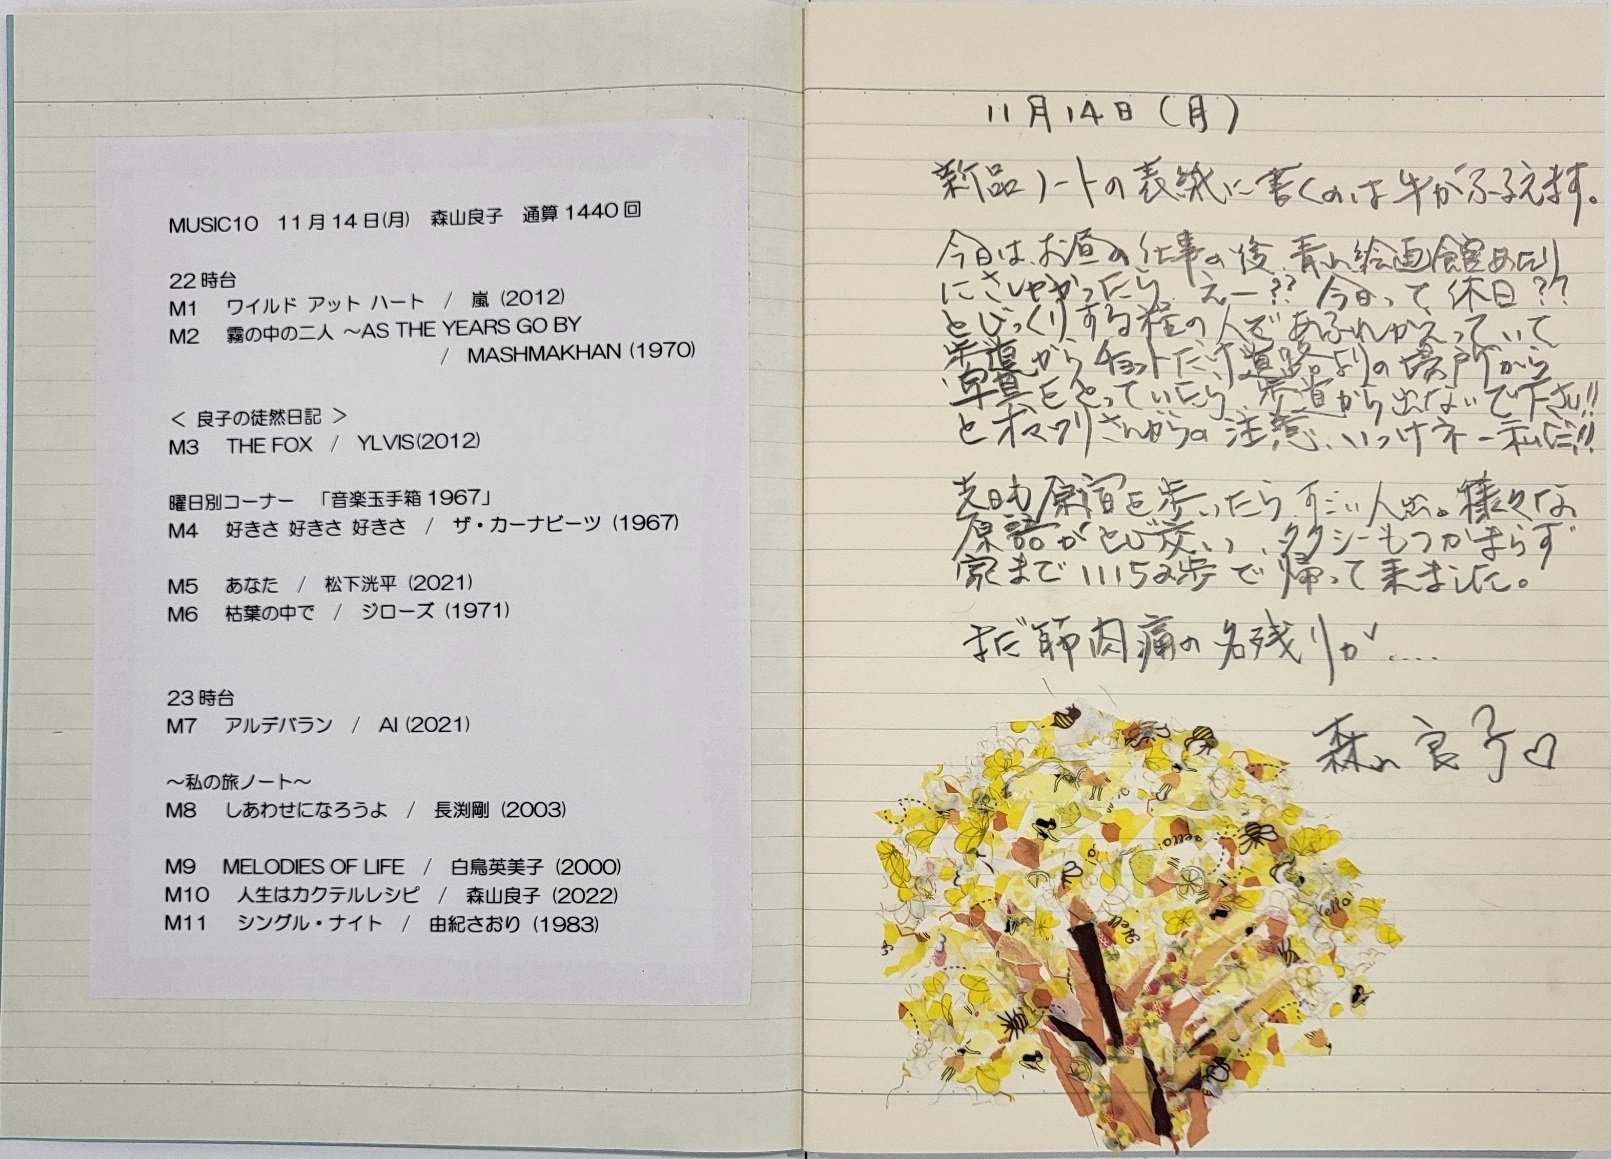 MUSIC10 11月14日(月) 森山良子 通算1440回
22時台
M1 ワイルド アット ハート / 嵐 (2012)
M2 霧の中の二人 ～AS THE YEARS GO BY
/ MASHMAKHAN (1970)
＜ 良子の徒然日記 ＞
M3 THE FOX / YLVIS(2012)
曜日別コーナー 「音楽玉手箱1967」
M4 好きさ 好きさ 好きさ / ザ・カーナビーツ (1967)
M5 あなた / 松下洸平 (2021)
M6 枯葉の中で / ジローズ (1971)
23時台
M7 アルデバラン / AI (2021)
～私の旅ノート～
M8 しあわせになろうよ / 長渕剛 (2003)
M9 MELODIES OF LIFE / 白鳥英美子 (2000)
M10 人生はカクテルレシピ / 森山良子 (2022)
M11 シングル・ナイト / 由紀さおり (1983)
11月14日(月)
新品ノートの表紙に書くのは手がふるえます。
今日は、お昼の仕事の後、青山絵画館あたり
にさしかかったら えー?? 今日って休日??
とびっくりする程の人であふれかえっていて
歩道からチョットだけ道路よりの場所から
写真をとっていたら、歩道から出ないで下さい!!
とオマワリさんからの注意、いっけネー私だ!!
先日も原宿を歩いたら すごい人出。様々な
言語がとび交い、タクシーもつかまらず
家まで11152歩で帰って来ました。
まだ筋肉痛の名残りが....
森山良子♡
Hello!
Hello
Hell